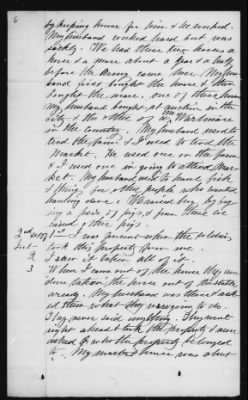 6
by keeping house for him & he worked.
My husband worked hard but was
sickly. We had these two horses a
horse & a mare about a year & a half
before the Army came here. My hus-
band first bought the horse & then
bought the mare. One of these horses
my husband bought at auction in the
city & the other of a Wm
in the country. My husband used to
tend the farm & I used to tend the
Market. He used one on the farm
& I used one in going to attend Mar-
ket. My husband used to haul first
& for other people who wanted
hauling done & Worked buy, by buy-
ing a pair of pigs, & from these we
raised other pigs.
I was present when the soldiers
took this property from me.
2
3
I saw it taken all of it.
When I came out of the house they com-
menced taking the horse out of the stable
already. My husband was there & ask-
ed them what they were going to do.
They never said anything. They went
right ahead & took the property & never
asked who the property belonged
to. My master's house was about